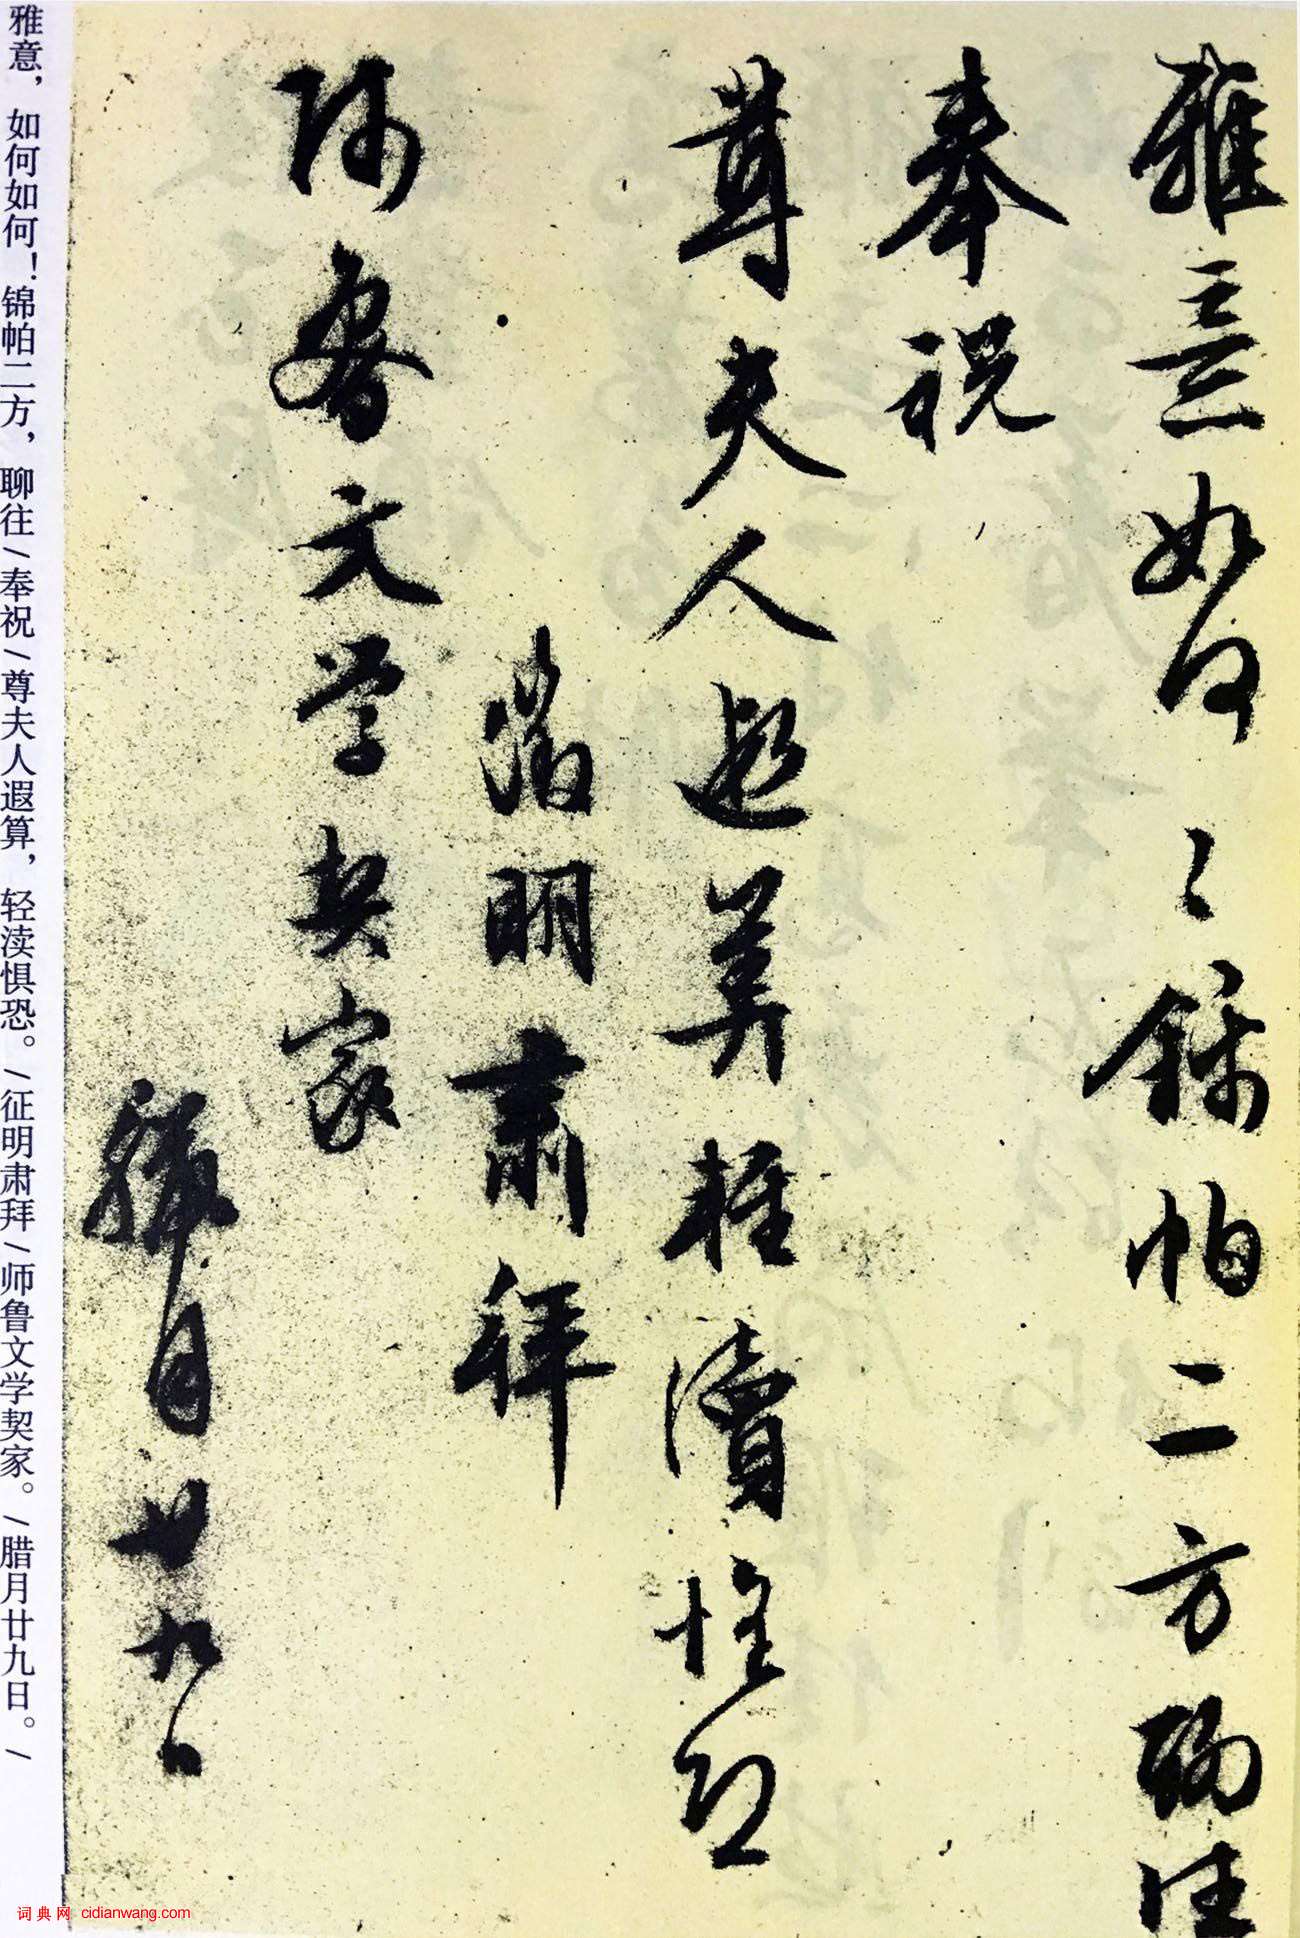 雅意如何〻錦帕二方聊往
奉祝
尊夫人遐算輕瀆惶恐
徵明肅拜
師魯文學契家
臘月廿九日
雅意，如何如何！锦帕二方，聊往/奉祝/尊夫人遐算，轻渎惧恐。/征明肃拜/师鲁文学契家。/腊月廿九日。/
词典网 cidianwang.com